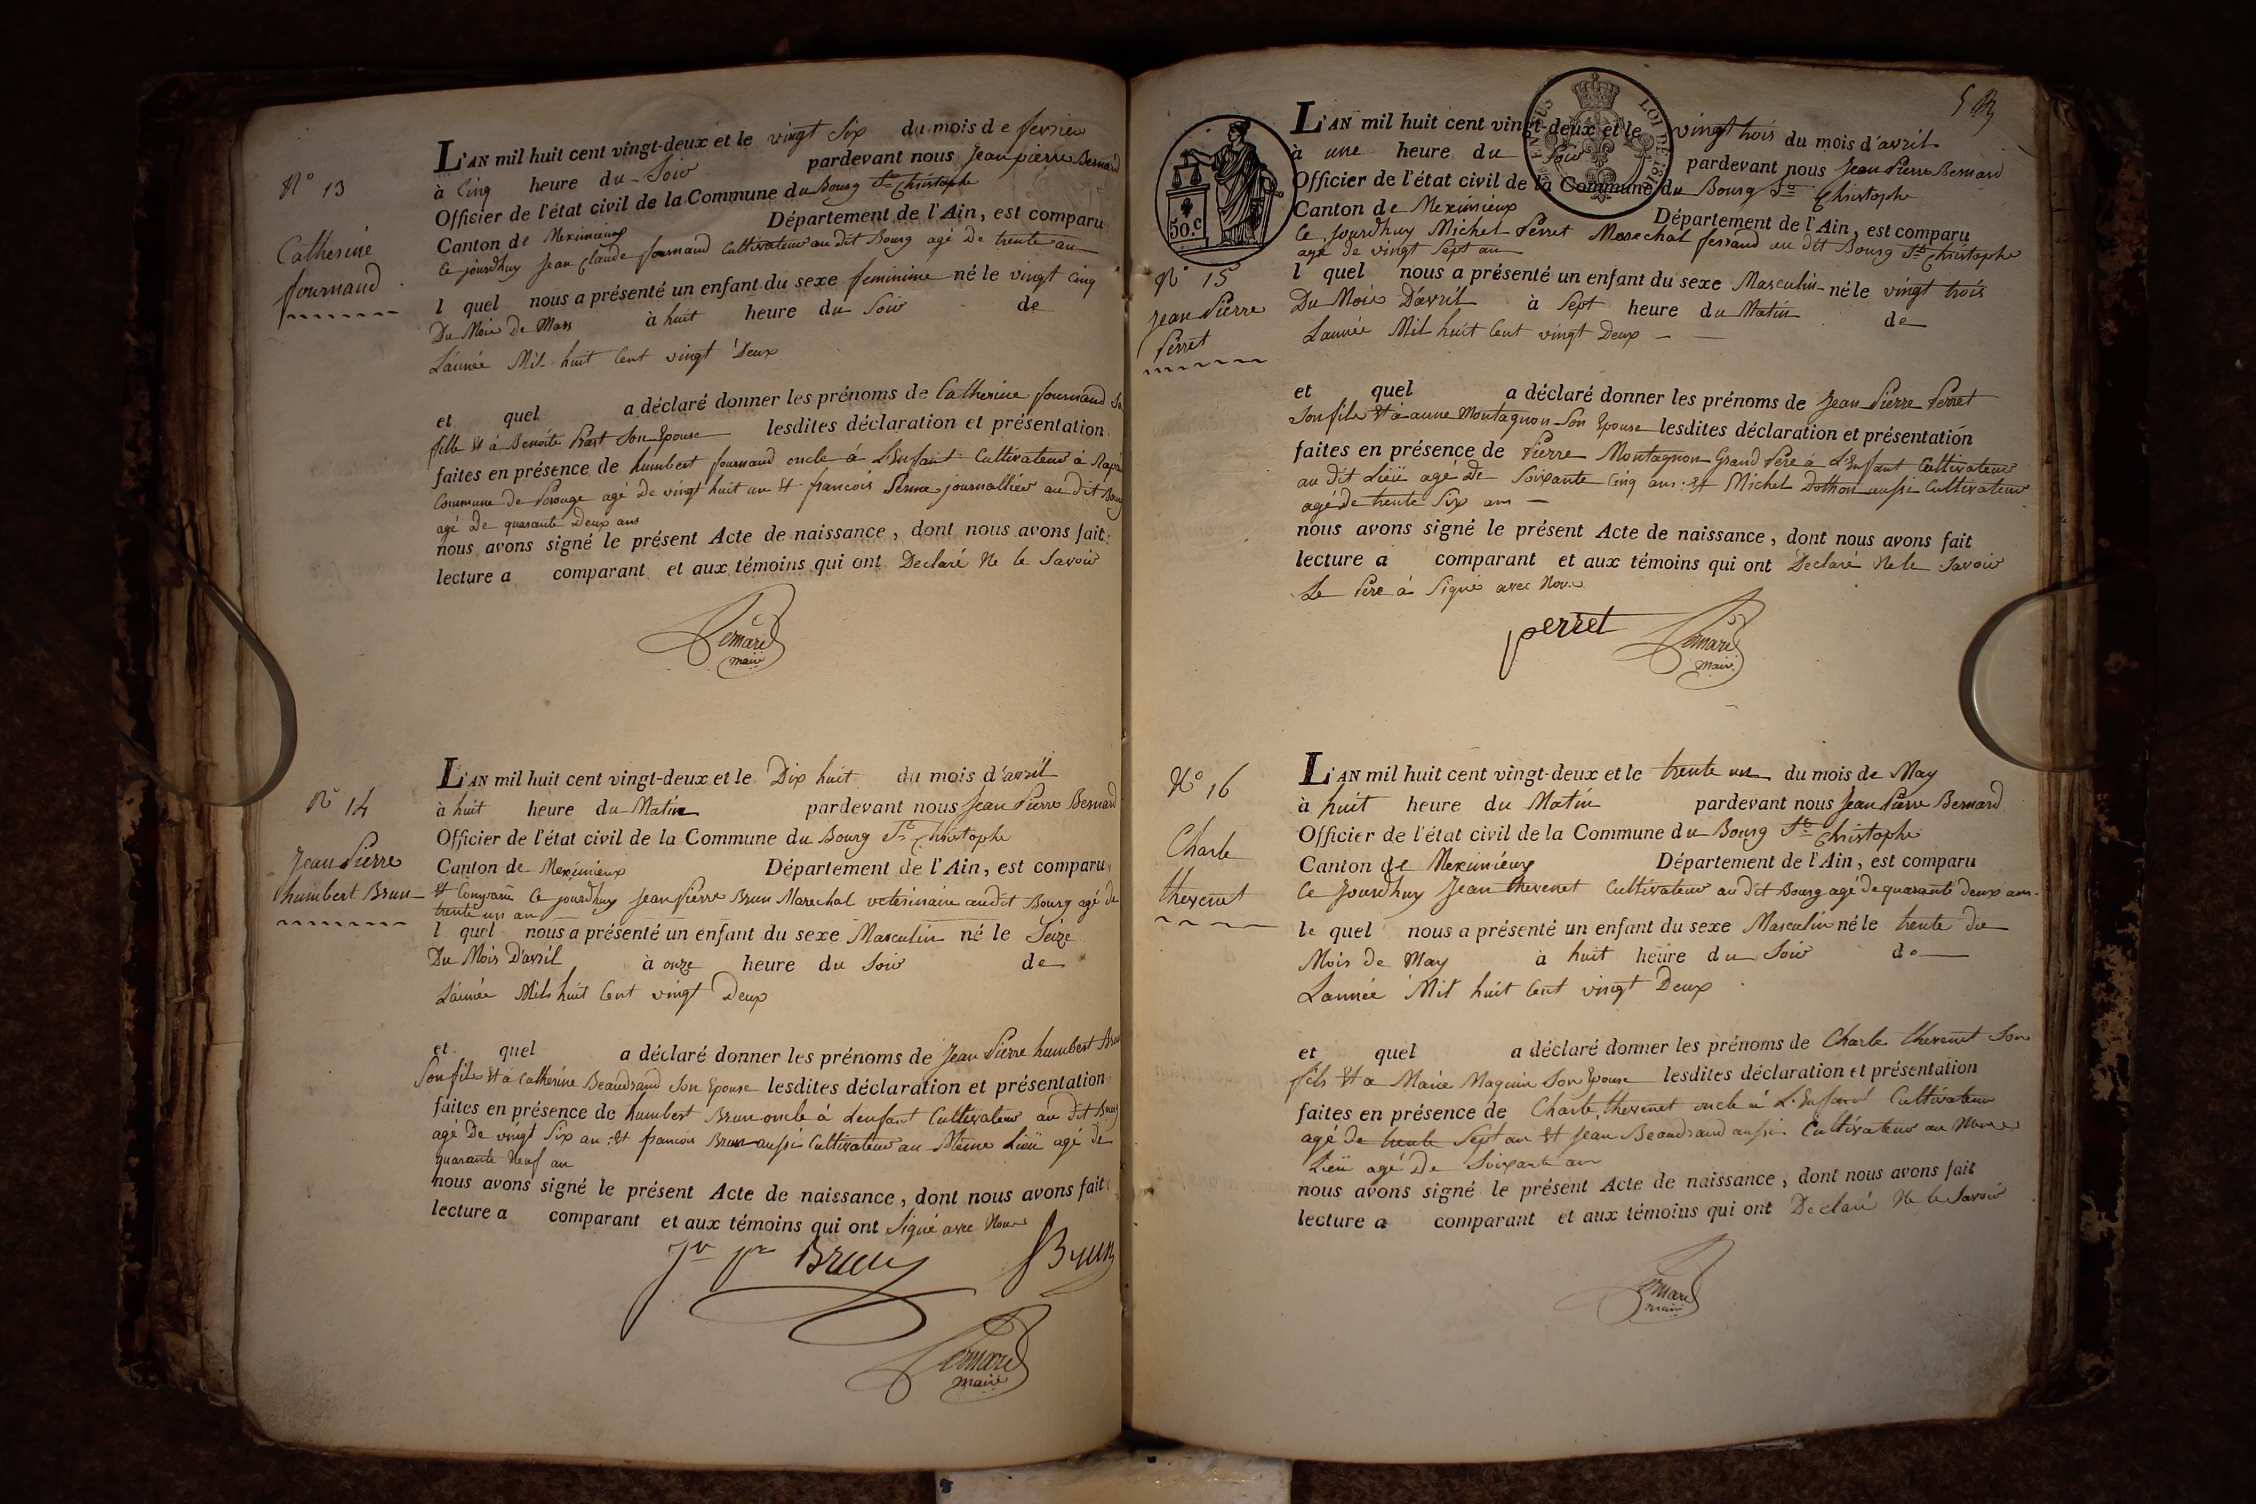 N° 13
Catherine
fournand
L'AN mil huit cent vingt-deux et le vingt Six du mois de fevrier
à Cinq heure du Soir pardevant nous Jean pierre Bernard
Officier de l'état civil de la Commune du Bourg St Christophe
Canton de Meximieux Département de l'Ain, est comparu
Ce jourdhuy Jean Claude fournand Cultivateur au dit Bourg agé De trente an
l quel nous a présenté un enfant du sexe feminime né le vingt Cinq
Du Mois De Mars à huit heure du Soir de
L'année Mil huit Cent vingt Deux
et quel a déclaré donner les prénoms de Catherine fournand Sa
fille Et à Benoite Son Epouse lesdites déclaration et présentation
faites en présence de humbert fournand oncle á L'Enfant Cultivateur à
Commune De Perouge agé De vingt huit an Et francois journallier au dit Bourg
agé De quarante Deux ans
nous avons signé le présent Acte de naissance, dont nous avons fait
lecture a comparant et aux témoins qui ont Declaré Ne le Savoir
Bernard
maire
N° 14
Jean Pierre
humbert Brun
L'AN mil huit cent vingt-deux et le Dix huit du mois d'avril
à huit heure du Matin pardevant nous Jean Pierre Bernard
Officier de l'état civil de la Commune du Bourg St Christophe
Canton de Meximieux Département de l'Ain, est comparu
Et Ce jourdhuy Jean Pierre Brun Marechal veterinaire audit Bourg agé de
trente un an
l quel nous a présenté un enfant du sexe Masculin né le Seize
Du Mois D'avril à onze heure du Soir de
L'année Mil huit Cent vingt Deux
et quel a déclaré donner les prénoms de Jean Pierre humbert Brun
Son fils Et à Catherine Beaudrand Son Epouse lesdites déclaration et présentation
faites en présence de humbert Brun oncle á Lenfant Cultivateur au dit Bourg
agé De vingt Six an Et francois Brun aussi Cultivateur au Même Lieü agé de
quarante Neuf an
nous avons signé le présent Acte de naissance, dont nous avons fait
lecture a comparant et aux témoins qui ont Signé avec Nous
Jn pre Brun fBrun
Bernard
maire
5
LOI DE 181
50.C
N° 15
Jean Pierre
Perret
L'AN mil huit cent vingt-deux et le vingt trois du mois d'avril
à une heure du Soir pardevant nous Jean Pierre Bernard
Officier de l'état civil de la Commune du Bourg St Christophe
Canton de Meximieux Département de l'Ain, est comparu
Ce jourdhuy Michel Perret Marechal ferrand au dit Bourg St Christophe
agé de vingt Sept an
l quel nous a présenté un enfant du sexe Masculin né le vingt trois
Du Mois D'avril à Sept heure du Matin de
L'année Mil huit Cent vingt Deux
et quel a déclaré donner les prénoms de Jean Pierre Perret
Son fils Et à anne Montagnon Son Epouse lesdites déclaration et présentation
faites en présence de Pierre Montagnon Grand Pere á L'Enfant Cultivateur
au dit Lieü agé De Soixante Cinq ans Et Michel Dothon aussi Cultivateur
agé de trente Six ans
nous avons signé le présent Acte de naissance, dont nous avons fait
lecture a comparant et aux témoins qui ont Declaré Ne le Savoir
Le Pere á Signé avec Nous
perret Bernard
maire
N° 16
Charle
thevenet
L'AN mil huit cent vingt-deux et le trente un du mois de May
à huit heure du Matin pardevant nous Jean Pierre Bernard
Officier de l'état civil de la Commune du Bourg St Christophe
Canton de Meximieux Département de l'Ain, est comparu
Ce Jourdhuy Jean thevenet Cultivateur au dit Bourg agé de quarante deux ans
le quel nous a présenté un enfant du sexe Masculin né le trente du
Mois de May à huit heure du Soir de
Lannée Mil huit Cent vingt Deux
et quel a déclaré donner les prénoms de Charle thevenet Son
fils Et a Marie Maguin Son Epouse lesdites déclaration et présentation
faites en présence de Charle thevenet oncle á L'Enfant Cultivateur
agé de trente Sept an Et Jean Beaudrand aussi Cultivateur au Meme
Lieü agé De Soixante an
nous avons signé le présent Acte de naissance, dont nous avons fait
lecture a comparant et aux témoins qui ont Declaré Ne le Savoir
Bernard
maire